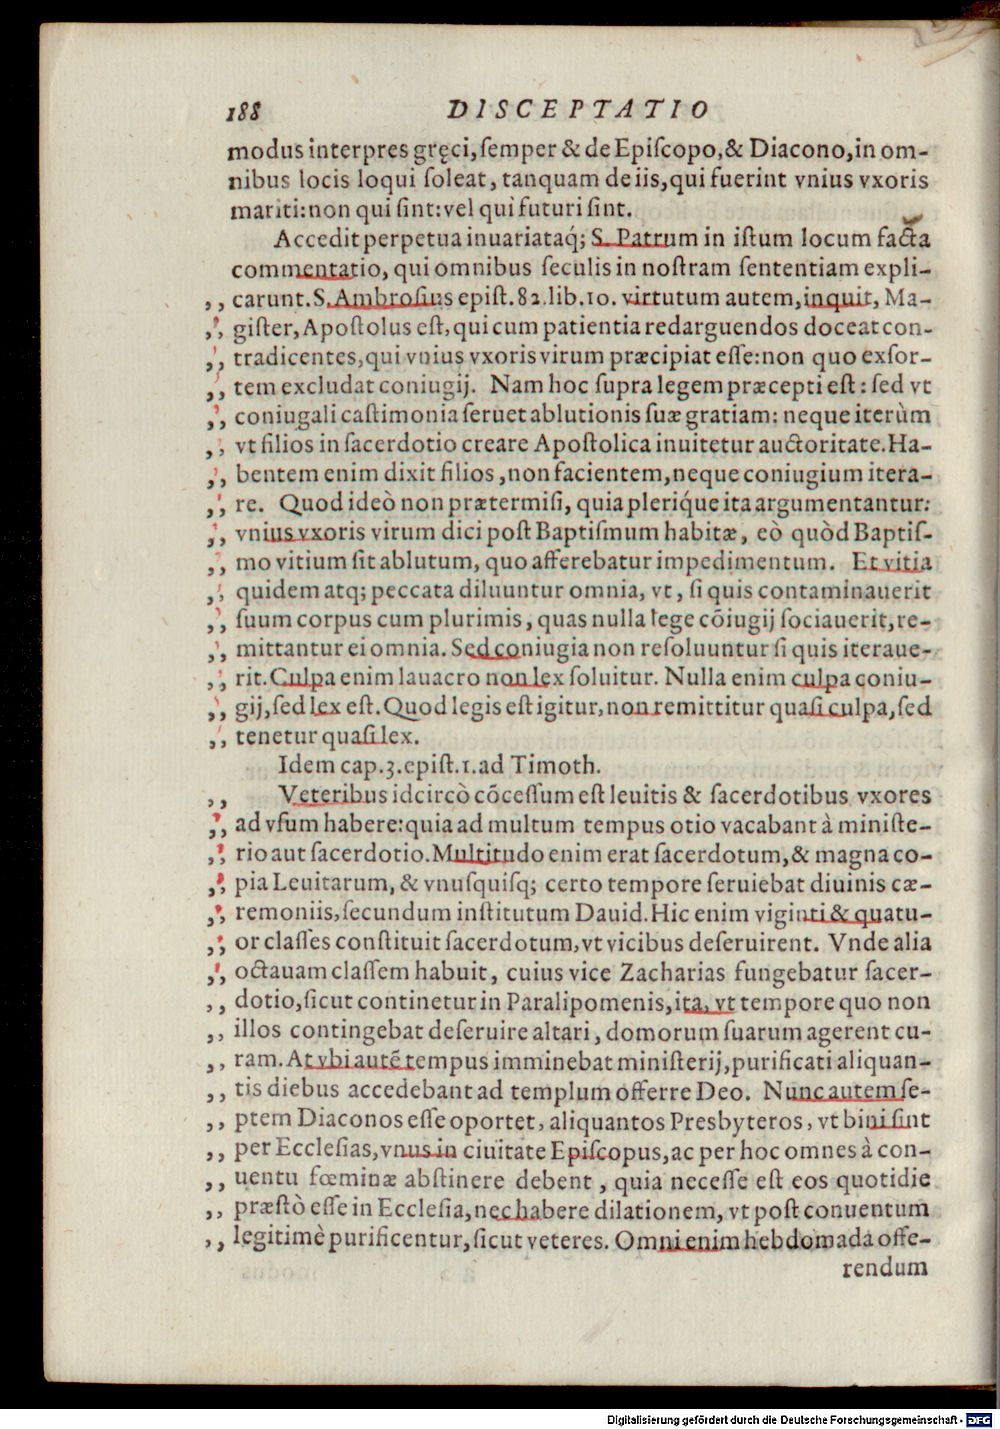 188 DISCEPTATIO
modus interpres gręci, ſemper & de Epiſcopo, & Diacono, in om-
nibus locis loqui ſoleat, tanquam de iis, qui fuerint vnius vxoris
mariti: non qui ſint: vel qui futuri ſint.
Accedit perpetua inuariataq́; S. Patrum in iſtum locum facta
commentatio, qui omnibus ſeculis in noſtram ſententiam expli-
,, carunt. S. Ambroſius epiſt. 82. lib. 10. virtutum autem, inquit, Ma-
,, giſter, Apoſtolus eſt, qui cum patientia redarguendos doceat con-
,, tradicentes, qui vnius vxoris virum præcipiat eſſe: non quo exſor-
,, tem excludat coniugij. Nam hoc ſupra legem præcepti eſt: ſed vt
,, coniugali caſtimonia ſeruet ablutionis ſuæ gratiam: neque iterùm
,, vt filios in ſacerdotio creare Apoſtolica inuitetur auctoritate. Ha-
,, bentem enim dixit filios, non facientem, neque coniugium itera-
,, re. Quod ideò non prætermiſi, quia pleriq́ue ita argumentantur:
,, vnius vxoris virum dici poſt Baptiſmum habitæ, eò quòd Baptiſ-
,, mo vitium ſit ablutum, quo afferebatur impedimentum. Et vitia
,, quidem atq; peccata diluuntur omnia, vt, ſi quis contaminauerit
,, ſuum corpus cum plurimis, quas nulla lege cōiugij ſociauerit, re-
,, mittantur ei omnia. Sed coniugia non reſoluuntur ſi quis iteraue-
,, rit. Culpa enim lauacro non lex ſoluitur. Nulla enim culpa coniu-
,, gij, ſed lex eſt. Quod legis eſt igitur, non remittitur quaſi culpa, ſed
,, tenetur quaſi lex.
Idem cap. 3. epiſt. 1. ad Timoth.
,, Veteribus idcircò cōceſſum eſt leuitis & ſacerdotibus vxores
,, ad vſum habere: quia ad multum tempus otio vacabant à miniſte-
,, rio aut ſacerdotio. Multitudo enim erat ſacerdotum, & magna co-
,, pia Leuitarum, & vnuſquiſq; certo tempore ſeruiebat diuinis cæ-
,, remoniis, ſecundum inſtitutum Dauid. Hic enim viginti & quatu-
,, or claſſes conſtituit ſacerdotum, vt vicibus deſeruirent. Vnde alia
,, octauam claſſem habuit, cuius vice Zacharias fungebatur ſacer-
,, dotio, ſicut continetur in Paralipomenis, ita, vt tempore quo non
,, illos contingebat deſeruire altari, domorum ſuarum agerent cu-
,, ram. At vbi autē tempus imminebat miniſterij, purificati aliquan-
,, tis diebus accedebant ad templum offerre Deo. Nunc autem ſe-
,, ptem Diaconos eſſe oportet, aliquantos Presbyteros, vt bini ſint
,, per Eccleſias, vnus in ciuitate Epiſcopus, ac per hoc omnes à con-
,, uentu fœminæ abſtinere debent, quia neceſſe eſt eos quotidie
,, præſtò eſſe in Eccleſia, nec habere dilationem, vt poſt conuentum
,, legitimè purificentur, ſicut veteres. Omni enim hebdomada offe-
rendum
Digitalisierung gefördert durch die Deutsche Forschungsgemeinschaft - DFG